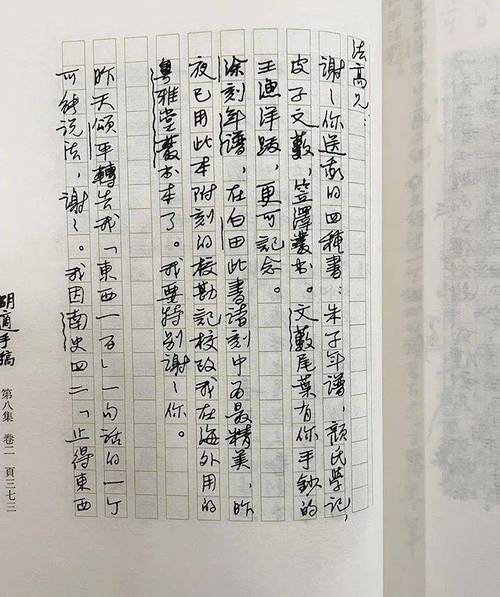 法高兄：
謝〃你送我的四種書：朱子年譜，顏氏學記，
皮子文藪，笠澤叢书。文藪尾葉有你手鈔的
王漁洋跋，更可記念。
涂刻年譜，在白田此書諸刻中为最精美，昨
夜已用此本附刻的校勘記校改我在海外用的
粵雅堂叢书本了。我要特别謝〃你。
昨天頌平轉告我「東西一百」一句話的一个
可能说法，謝〃。我因南史四二「止得東西
胡適手稿 第八集 卷二 頁三七三